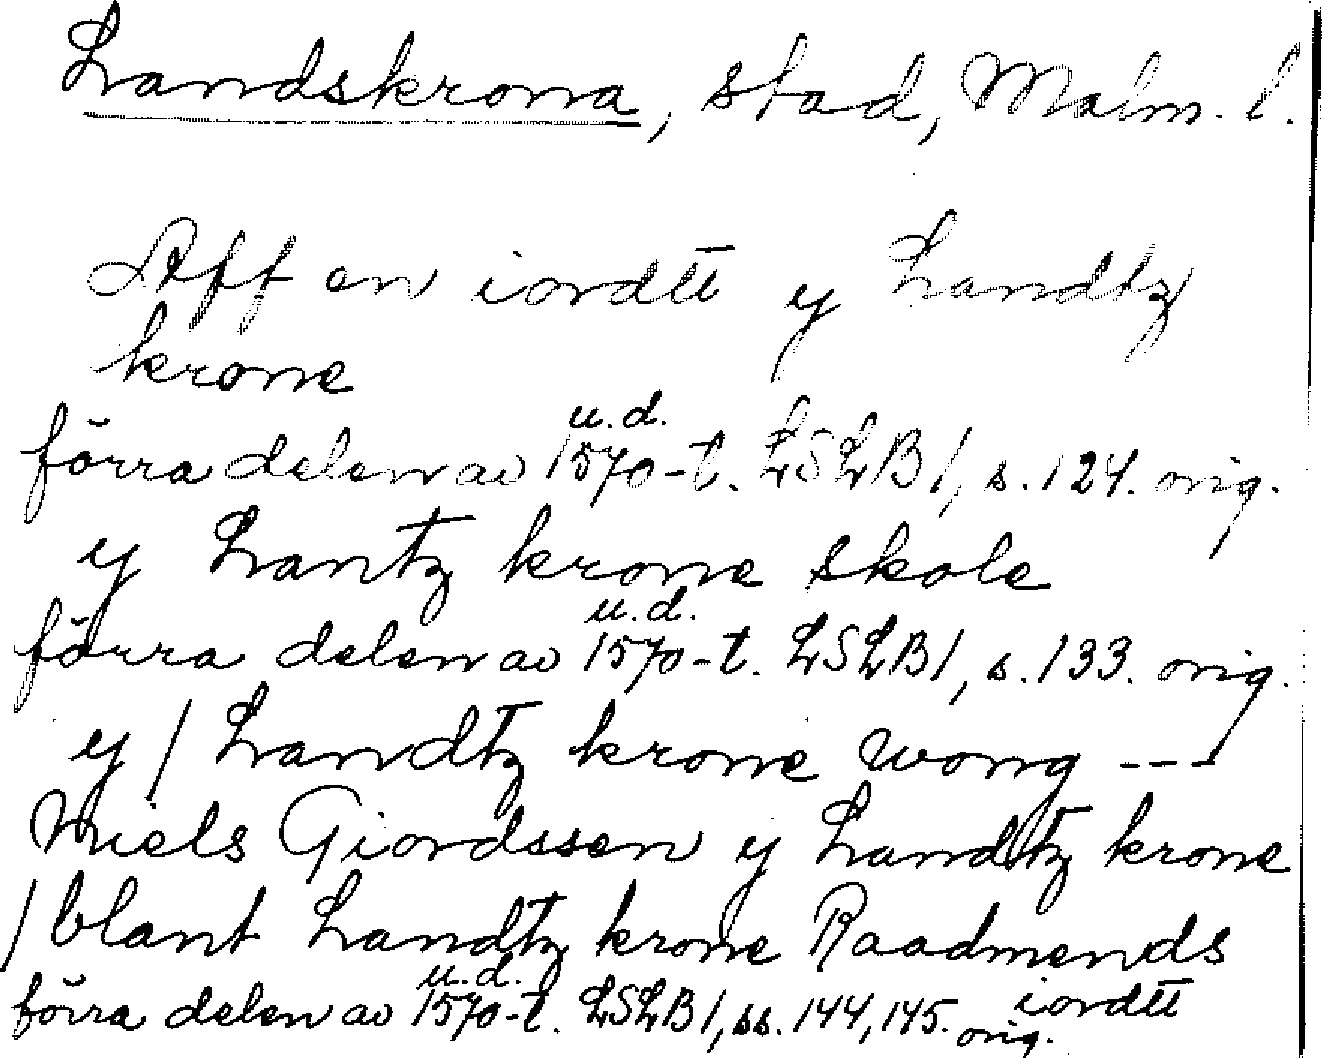 Landskrona, stad, Malm. l.
Aff en iordtt y Landtz
krone
u.d.
förra delen av 1570-t. LSLB 1, s. 124. orig.
y Lantz krone skole
u.d.
förra delen av 1570-t. LSLB 1, s. 133. orig.
y / Landtz krone wong ---
Niels Giordssen y Landtz krone
/ blant Landtz krone Raadmends
iordtt
u.d.
förra delen av 1570-t. LSLB 1, ss. 144, 145. orig.